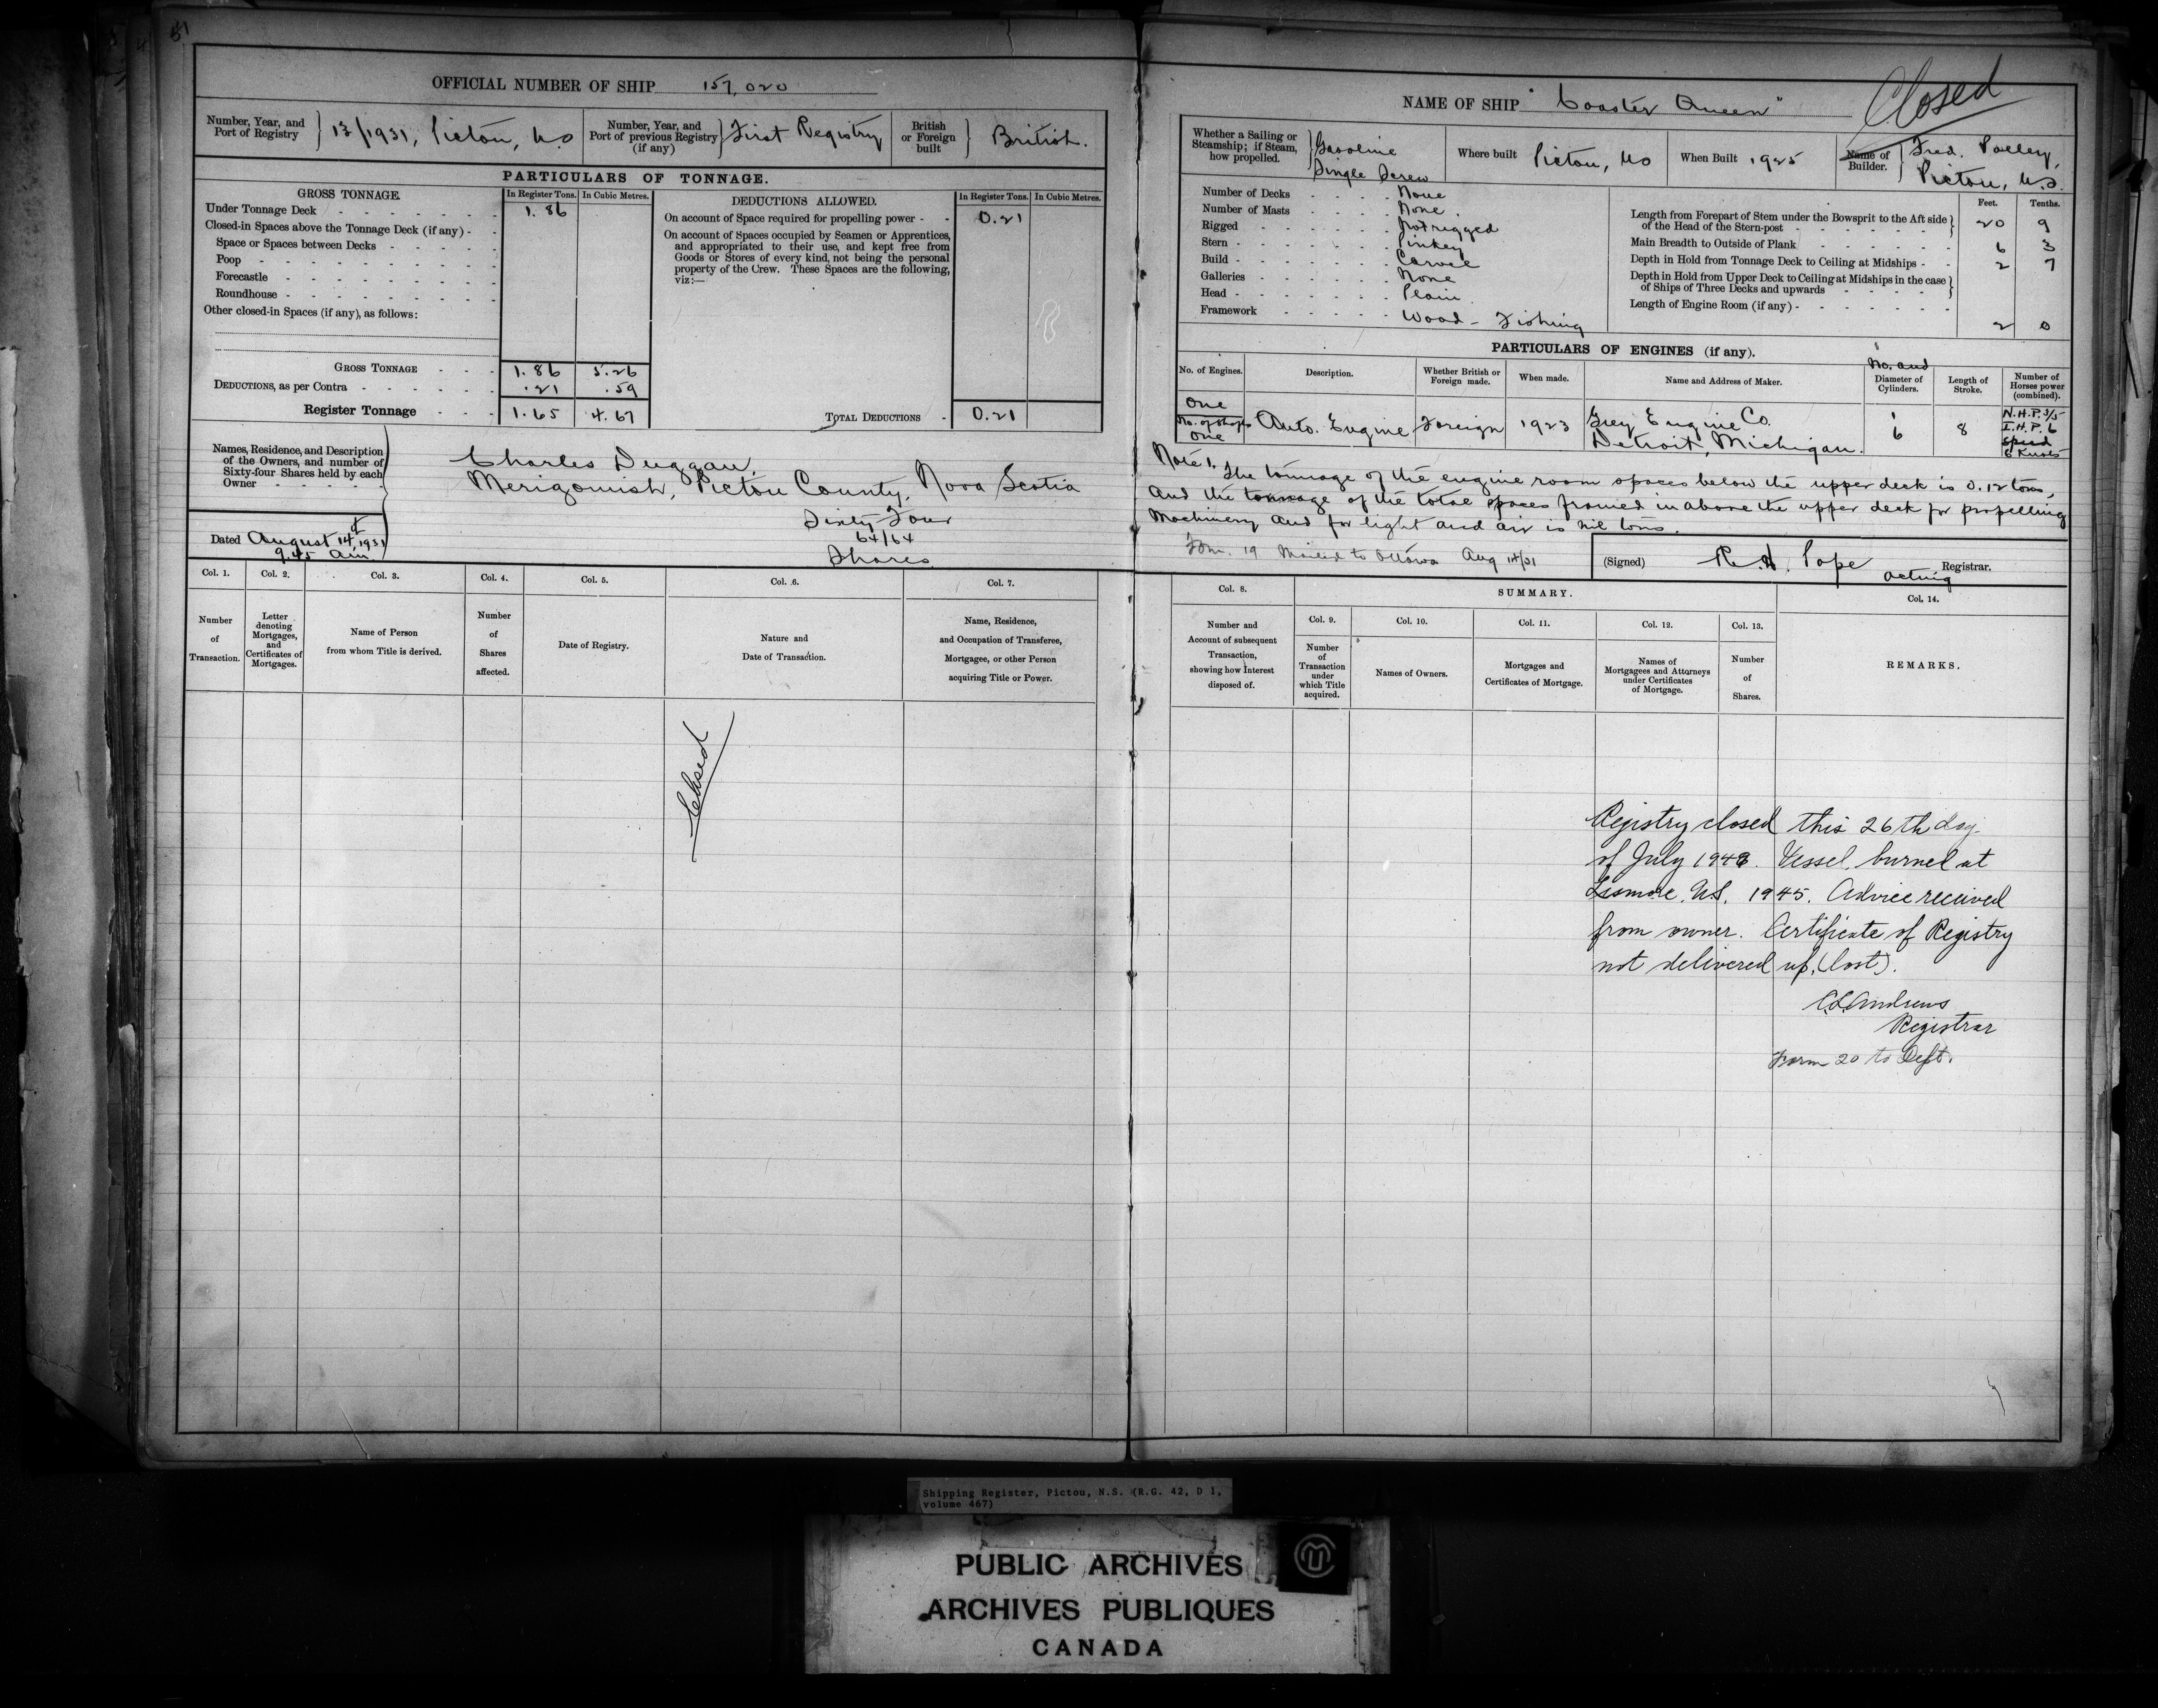 51
OFFICIAL NUMBER OF SHIP 157,020
Number, Year, and Port of Registry } 13/1931, Pictou, N.S
Number, Year, and Port of previous Registry (if any) } First Registry
British or Foreign built } British.
PARTICULARS OF TONNAGE.
GROSS TONNAGE. In Register Tons. In Cubic Metres.
Under Tonnage Deck 1.86
Closed-in Spaces above the Tonnage Deck (if any)
Space or Spaces between Decks
Poop
Forecastle
Roundhouse
Other closed-in Spaces (if any), as follows:
GROSS TONNAGE 1.86 5.26
DEDUCTIONS, as per Contra .21 .59
Register Tonnage 1.65 4.67
DEDUCTIONS ALLOWED. In Register Tons. In Cubic Metres.
On account of Space required for propelling power 0.21
On account of Spaces occupied by Seamen or Apprentices,
and appropriated to their use, and kept free from
Goods or Stores of every kind, not being the personal
property of the Crew. These Spaces are the following,
viz:—
TOTAL DEDUCTIONS 0.21
Names, Residence, and Description
of the Owners, and number of
Sixty-four Shares held by each
Owner
Charles Duggan,
Merigomish, Pictou County, Nova Scotia
Sixty Four
64/64
Shares
Dated August 14th, 1931
9.45 Am
Col. 1. Col. 2. Col. 3. Col. 4. Col. 5. Col. 6. Col. 7.
Number of Transaction.
Letter denoting Mortgages, and Certificates of Mortgages.
Name of Person from whom Title is derived.
Number of Shares affected.
Date of Registry.
Nature and Date of Transaction.
Name, Residence, and Occupation of Transferee, Mortgagee, or other Person acquiring Title or Power.
Closed
NAME OF SHIP "Coaster Queen"
Closed
Whether a Sailing or Steamship; if Steam, how propelled. } Gasoline Single Screw
Where built Pictou, NS
When Built 1925
Name of Builder. { Fred. Polley, Pictou, N.S.
Number of Decks None
Number of Masts None.
Rigged Not rigged
Stern Pinkey
Build Carvel
Galleries None
Head Plain.
Framework Wood - Fishing
Feet. Tenths.
Length from Forepart of Stem under the Bowsprit to the Aft side of the Head of the Stern-post } 20 9
Main Breadth to Outside of Plank 6 3
Depth in Hold from Tonnage Deck to Ceiling at Midships 2 7
Depth in Hold from Upper Deck to Ceiling at Midships in the case of Ships of Three Decks and upwards }
Length of Engine Room (if any) 2 0
PARTICULARS OF ENGINES (if any).
No. of Engines. Description. Whether British or Foreign made. When made. Name and Address of Maker. No. and Diameter of Cylinders. Length of Stroke. Number of Horses power (combined).
One
No. of Shafts
One
Auto. Engine Foreign 1923
Grey Engine Co.
Detroit, Michigan.
1
6
8
N.H.P. 3/5
I.H.P. 6
Speed
6 Knots
Note 1. The tonnage of the engine room spaces below the upper deck is 0.12 tons,
and the tonnage of the total spaces framed in above the upper deck for propelling
Machinery and for light and air is nil tons.
Form. 19 Mailed to Ottawa Aug 14/31
(Signed) R.H. Pope Acting Registrar.
Col. 8. SUMMARY. Col. 14.
Col. 9. Col. 10. Col. 11. Col. 12. Col. 13.
Number and Account of subsequent Transaction, showing how Interest disposed of.
Number of Transaction under which Title acquired.
Names of Owners.
Mortgages and Certificates of Mortgage.
Names of Mortgagees and Attorneys under Certificates of Mortgage.
Number of Shares.
REMARKS.
Registry closed this 26th day
of July 1948. Vessel burned at
Lismore. N.S. 1945. Advice received
from owner. Certificate of Registry
not delivered up. (lost).
C.L. Andrews
Registrar
Form 20 to Dept.
Shipping Register, Pictou, N.S. (R.G. 42, D 1,
volume 467)
PUBLIC ARCHIVES
ARCHIVES PUBLIQUES
CANADA